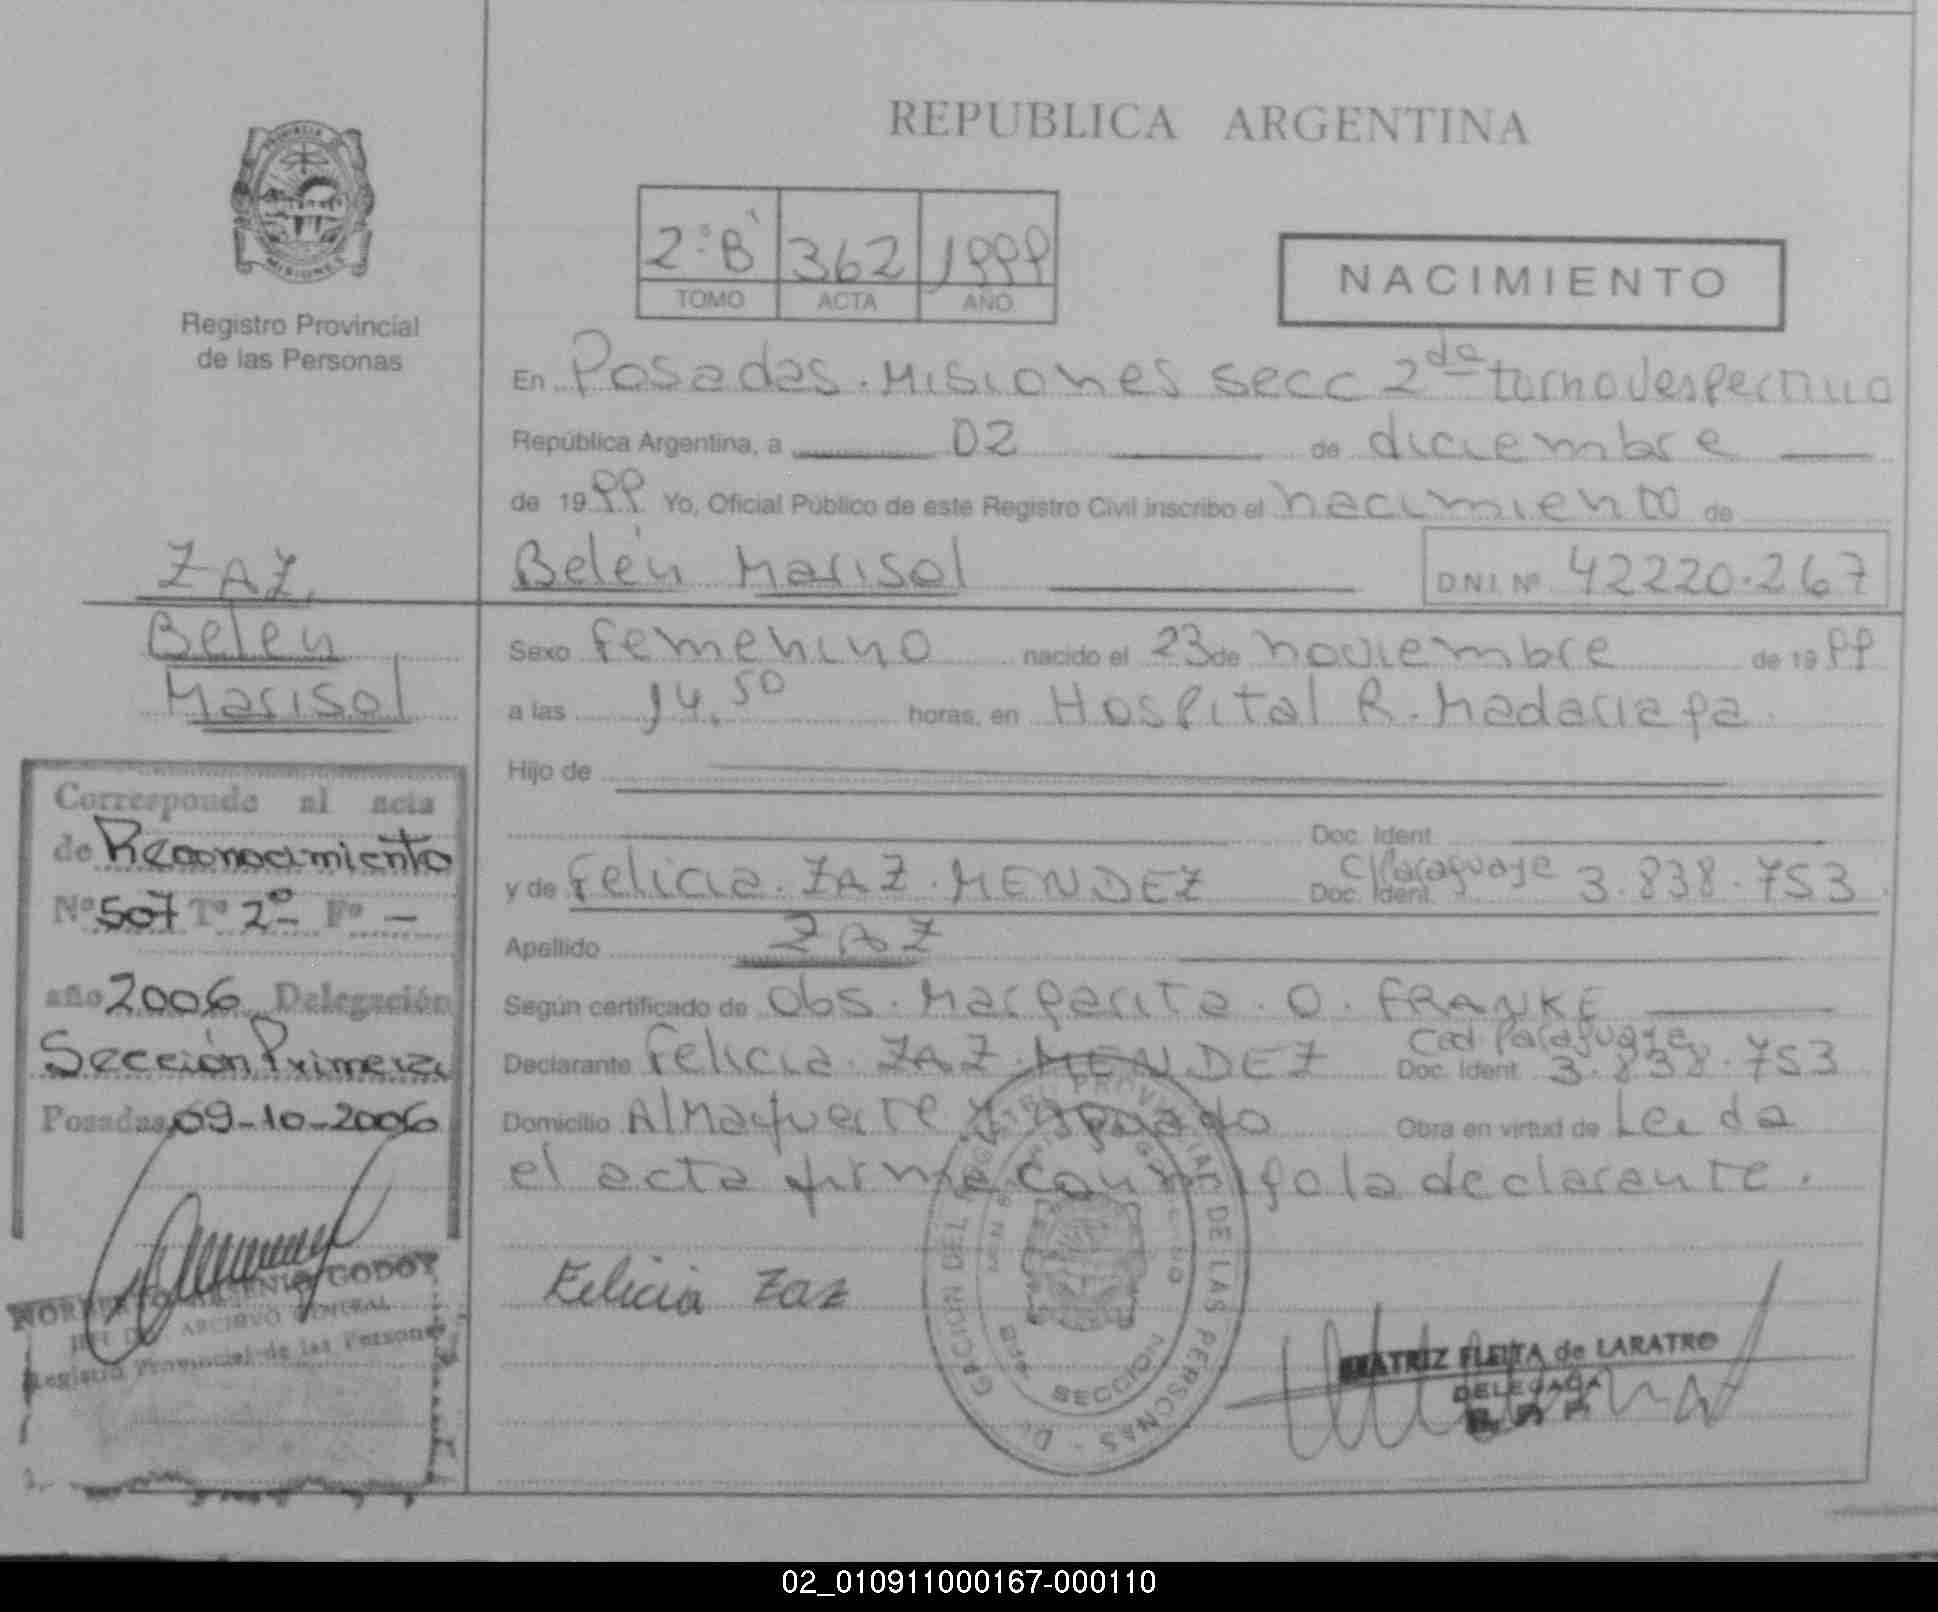 REPUBLICA ARGENTINA
PROVINCIA DE
MISIONES
Registro Provincial
de las Personas
2º B 362 1999
TOMO ACTA AÑO
NACIMIENTO
En Posadas. Misiones secc 2da turno vespertino
República Argentina, a 02 de diciembre
de 1999 Yo, Oficial Público de este Registro Civil inscribo el nacimiento de
Belén Marisol D.N.I. Nº 42220.267
ZAZ,
Belén
Marisol
Sexo femenino nacido el 23 de noviembre de 1999
a las 14,50 horas, en Hospital R. Madariaga.
Hijo de
Doc. Ident.
y de Felicia. ZAZ. MENDEZ Doc. Ident. C/Paraguaye 3.838.753
Apellido ZAZ
Según certificado de Obs. Margarita. O. FRANKE
Declarante Felicia. ZAZ. MENDEZ Doc. Ident. Ced. Paraguaye 3.838.753
Domicilio Almafuerte y Aguado Obra en virtud de Leida
el acta firma conmigo la declarante.
Felicia Zaz
BEATRIZ FLEITA de LARATRO
DELEGADA
SECCION
Corresponde al acta
de Reconocimiento
Nº 507 Tº 2º Fº -
año 2006 Delegación
Sección Primera
Posadas, 09-10-2006
GODOY
ARCHIVO GENERAL
Registro Provincial de las Personas
02_010911000167-000110